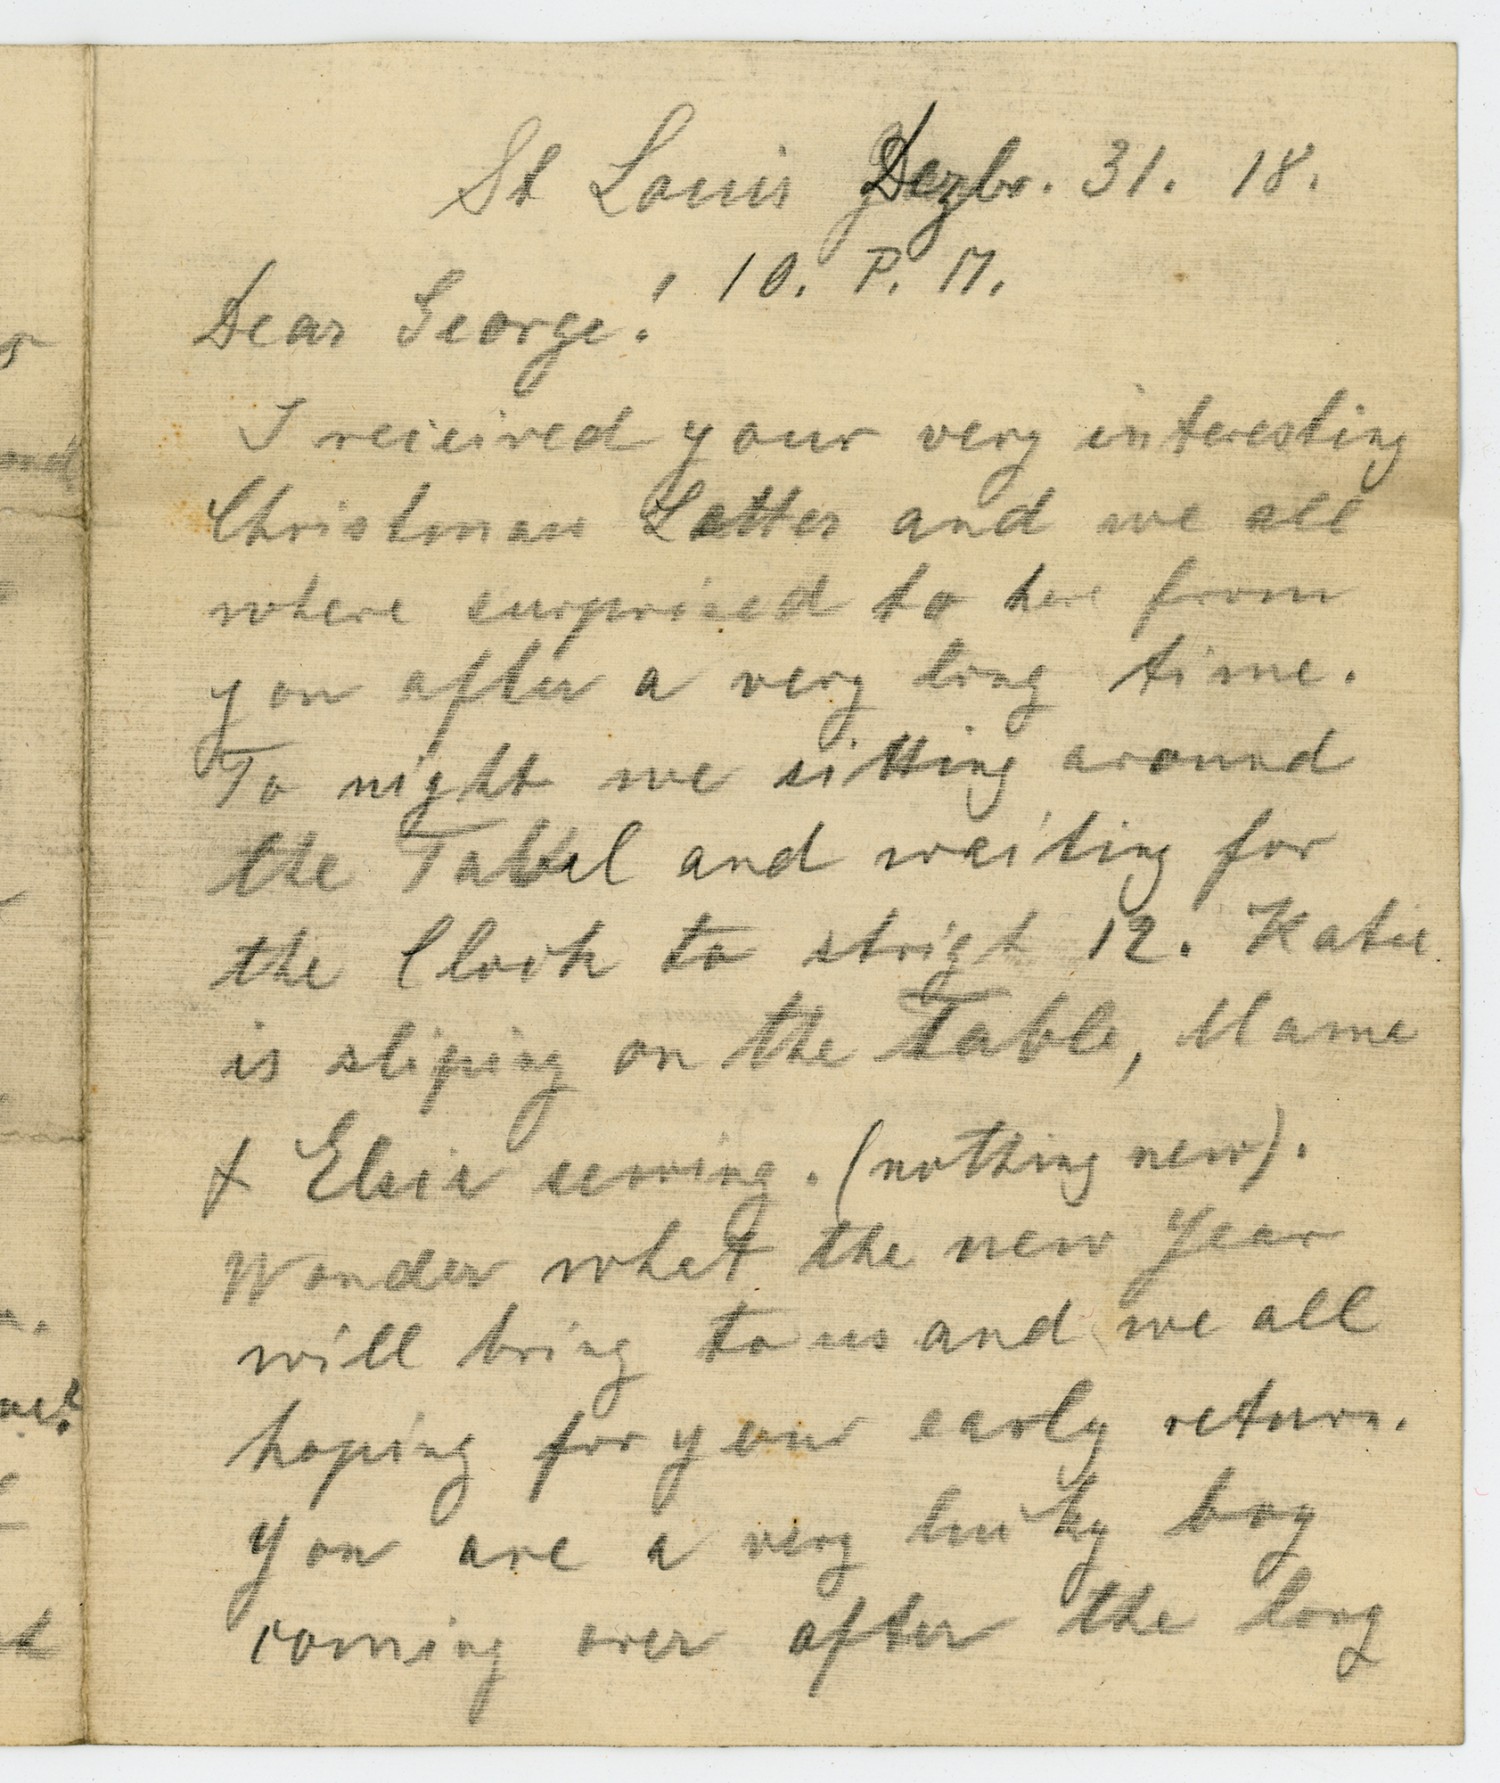 St Louis Dezbr. 31. 18.
10. P. M.
Dear George!
I reieired your very interesting
Christmas Letter and we all
where surprised to here from
you after a very long time.
To night we sitting around
the Tabel and waiting for
the Clock to stright 12. Katie
is sliping on the Table, Mama
& Elsie sewing. (nothing new).
Wonder what the new Year
will bring to us and we all
hoping for your early return.
You are a very lucky boy
coming over after the long
and